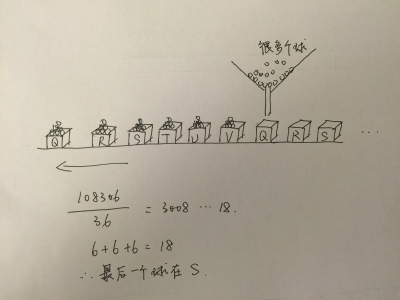 很多个球
Q R S T U V Q R S ...
108306
36
= 3008 ... 18.
6+6+6=18
∴ 最后一个球在 S.